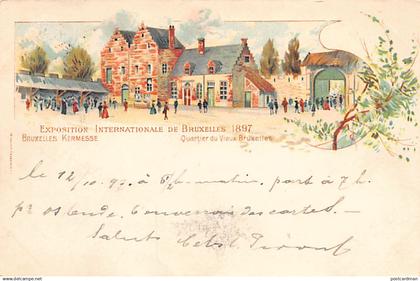 EXPOSITION INTERNATIONALE DE BRUXELLES 1897
BRUXELLES KERMESSE Quartier du Vieux Bruxelles
le 12/10.97. à 6 1/2 h. matin, part à 7 h.
pr ostende. des cartes. —
Saluts
https://postcardman.delcampe.net
postcardman